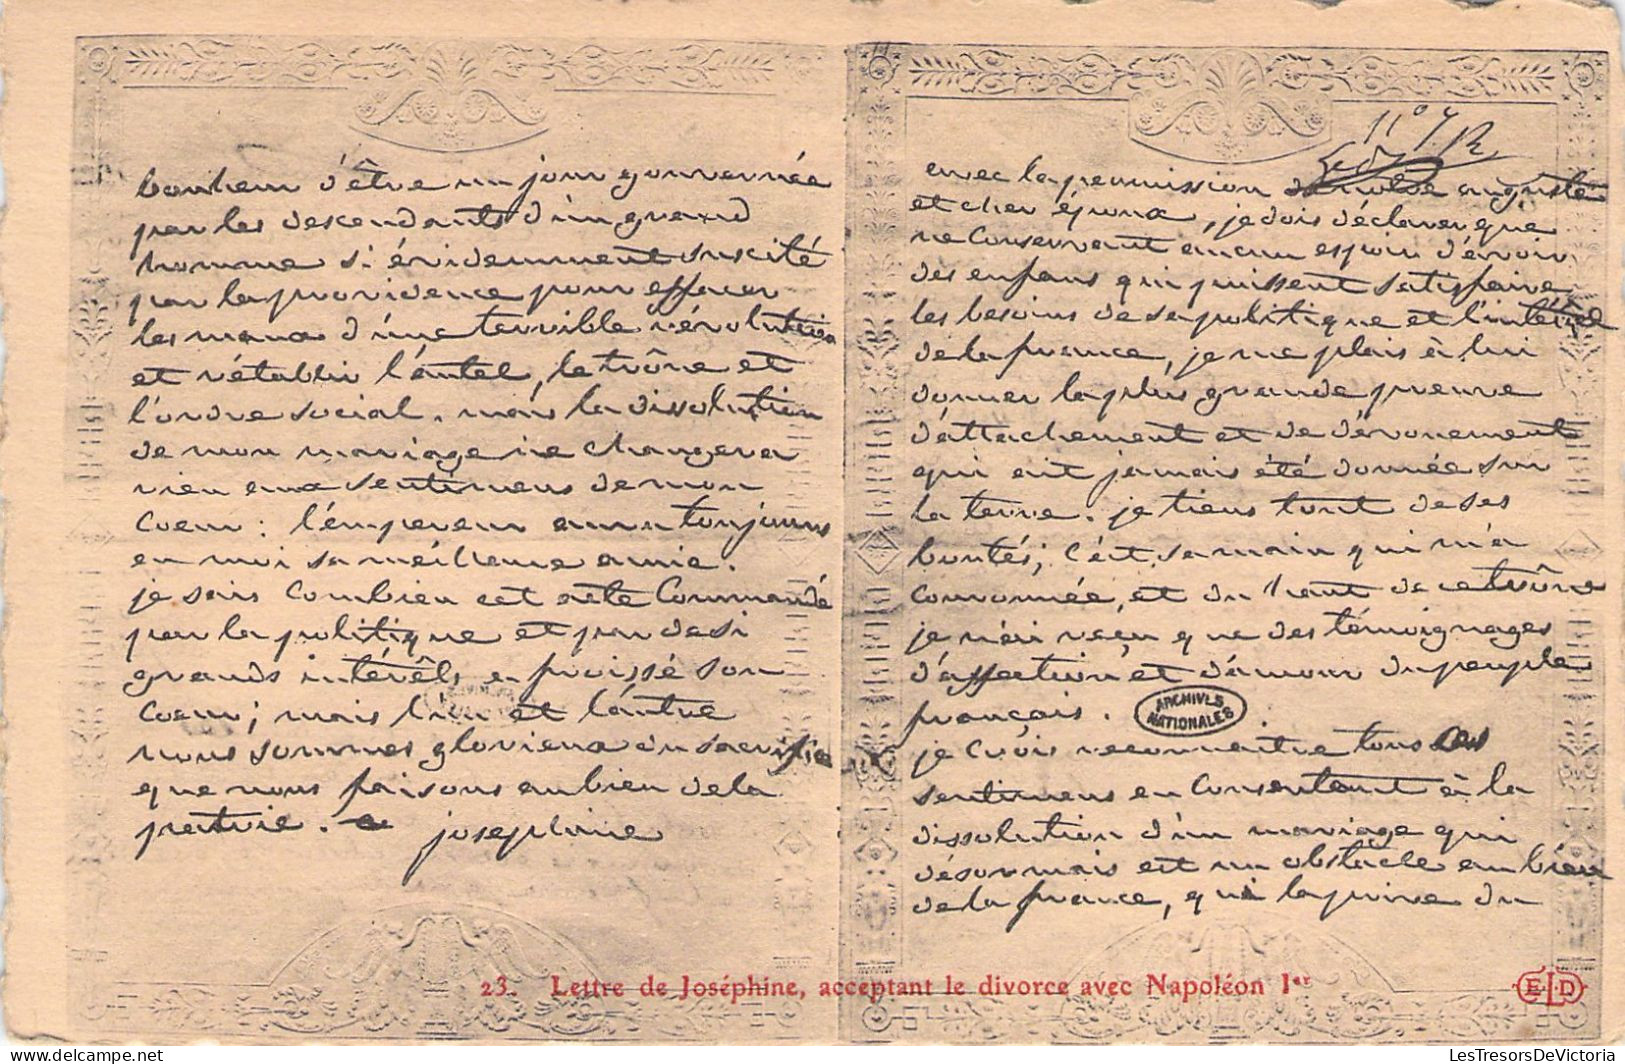 avec la permission de notre auguste
et cher époux, je dois déclarer que
ne conservant aucun espoir d'avoir
des enfans qui puissent satisfaire
les besoins de sa politique et l'intérêt
de la france, je me plais à lui
donner la plus grande preuve
d'attachement et de dévouement
qui ait jamais été donnée sur
la terre. je tiens tout de ses
bontés; c'est sa main qui m'a
couronnée, et du haut de ce trône
je n'ai reçu que des témoignages
d'affection et d'amour du peuple
français.
ARCHIVES
NATIONALES
je crois reconnaitre tous ces
sentimens en consentant à la
dissolution d'un mariage qui
désormais est un obstacle au bien
de la france, qui la prive du
bonheur d'être un jour gouvernée
par les descendants d'un grand
homme si évidemment suscité
par la providence pour effacer
les maux d'une terrible révolution
et rétablir l'autel, le trône et
l'ordre social. mais la dissolution
de mon mariage ne changera
rien aux sentimens de mon
coeur: l'empereur aura toujours
en moi sa meilleure amie.
je sais combien cet acte commandé
par la politique et par de si
grands intérêts a froissé son
coeur; mais l'un et l'autre
nous sommes glorieux du sacrifice
que nous faisons au bien de la
patrie.
josephine
23. Lettre de Joséphine, acceptant le divorce avec Napoléon Ier
ELD
LesTresorsDeVictoria